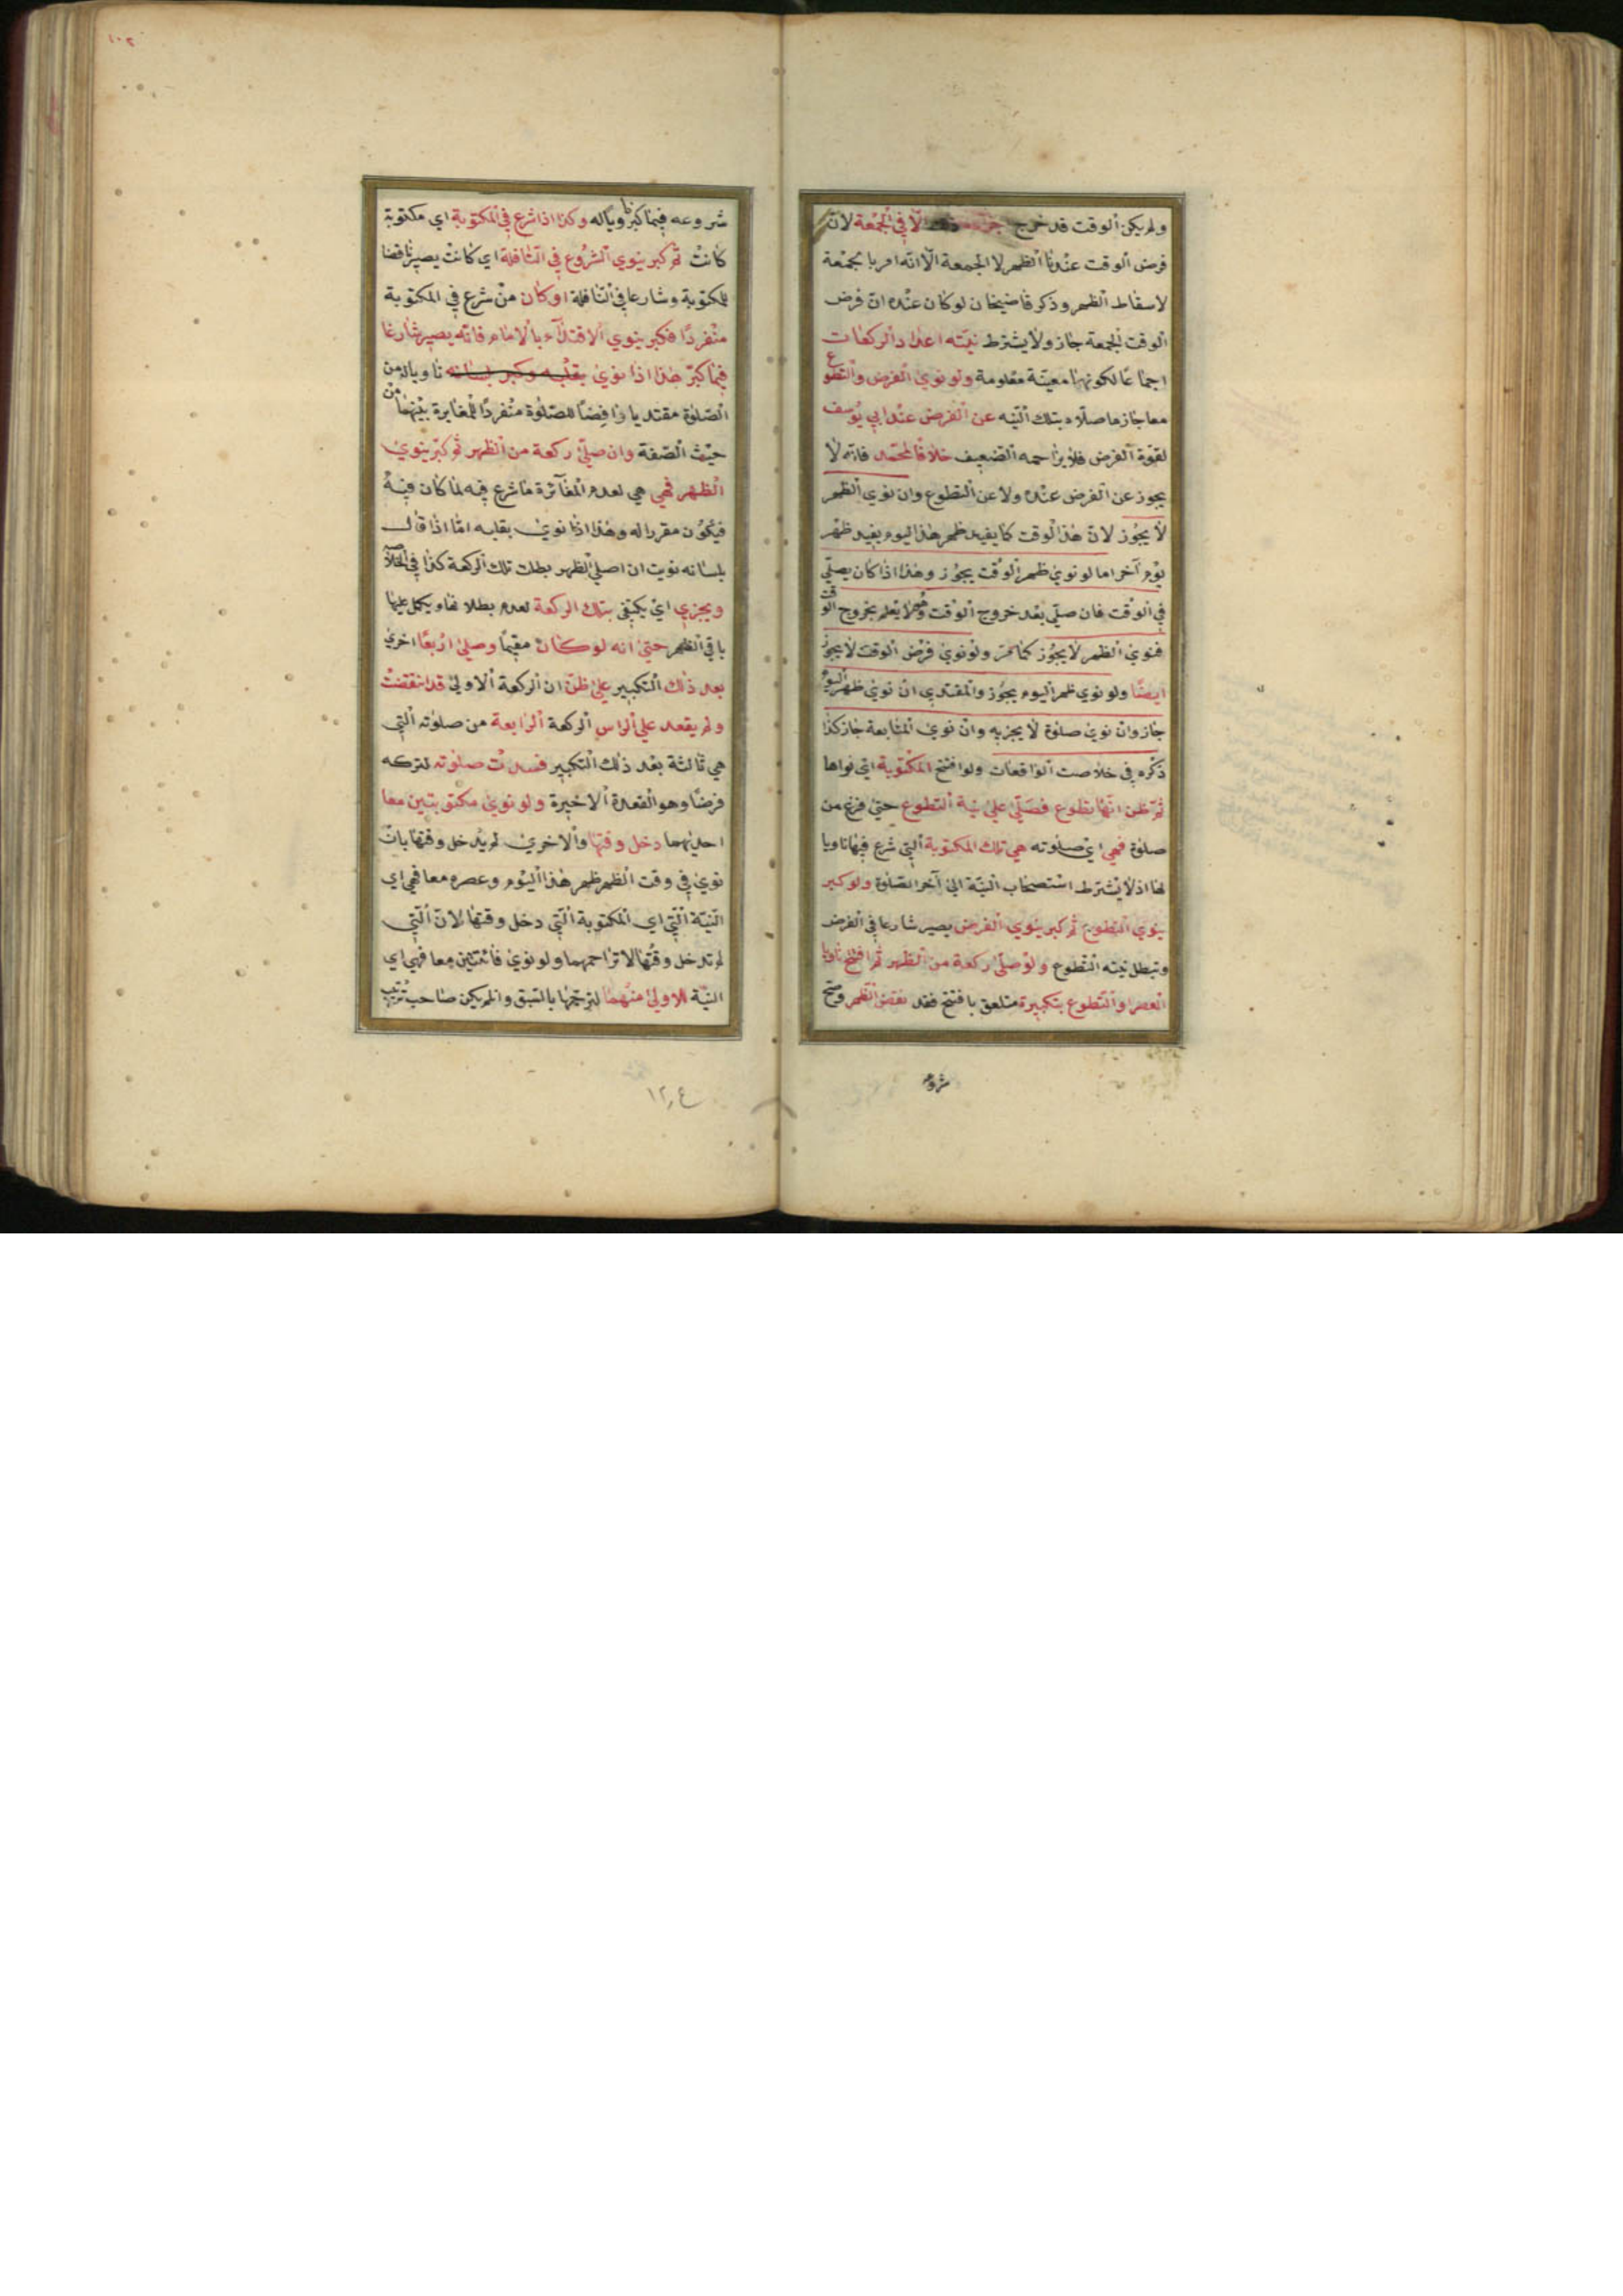 ولم يكن الوقت قد خرج الا في الجمعة لان
فرض الوقت عندنا الظهر لا الجمعة الا انه امر بالجمعة
لاسقاط الظهر وذكر قاضيخان لو كان عنده ان فرض
الوقت الجمعة جاز ولا يشترط نيته اعداد الركعات
اجماعا لكونها معينة معلومة ولو نوى الفرض والتطوع
معا جاز ما صلاه بتلك النيه عن الفرض عند ابي يوسف
لقوة الفرض فلا يزاحمه الضعيف خلافا لمحمد فانه لا
يجوز عن الفرض عنده ولا عن التطوع وان نوى الظهر
لا يجوز لان هذا الوقت كما يفيد ظهر هذا اليوم يفيد ظهر
يوم آخر اما لو نوى ظهر الوقت يجوز وهذا اذا كان يصلي
في الوقت فان صلى بعد خروج الوقت وهو لا يعلم بخروج الوقت
فنوى الظهر لا يجوز كما مر ولو نوى فرض الوقت لا يجوز
ايضا ولو نوى ظهر اليوم يجوز والمقتدي ان نوى ظهر اليوم
جاز وان نوى صلوة لا يجزيه وان نوى المتابعة جاز كذا
ذكره في خلاصت الواقعات ولو افتتح المكتوبة التي نواها
ثم ظن انها تطوع فصلى على نية التطوع حتى فرغ من
صلوة فهي اي صلوته هي تلك المكتوبة التي شرع فيها ناويا
لها اذ لا يشترط استصحاب النية الى آخر الصلوة ولو كبر
ينوي التطوع ثم كبر ينوي الفرض يصير شارعا في الفرض
وتبطل نيته التطوع ولو صلى ركعة من الظهر ثم افتتح ناويا
العصر او التطوع بتكبيرة متعلق بافتتح فقد نقض الظهر وصح
شروعه
١٠٢
شروعه فيما كبر ناويا له وكذا اذا شرع في المكتوبة اي مكتوبة
كانت ثم كبر ينوي الشروع في النافلة اي كانت يصير ناقضا
للمكتوبة وشارعا في النافلة او كان من شرع في المكتوبة
منفردا فكبر ينوي الاقتداء بالامام فانه يصير شارعا
فيما كبر هذا اذا نوى بقلبه وكبر بلسانه ناويا له من
الصلوة مقتديا رافضا للصلوة منفردا للمغايرة بينهما من
حيث الصفة وان صلى ركعة من الظهر ثم كبر ينوي
الظهر فهي هي لعدم المغائرة ما شرع فيه لما كان فيه
فيكون مقررا له وهذا اذا نوى بقلبه اما اذا قال
بلسانه نويت ان اصلي الظهر بطلت تلك الركعة كذا في الخلاصه
ويجزي اي يكتفى بتلك الركعة لعدم بطلانها ويكمل عليها
باقي الظهر حتى انه لو كان مقيما وصلى اربعا اخرى
بعد ذلك التكبير على ظن ان الركعة الاولى قد انتقضت
ولم يقعد على الراس الركعة الرابعة من صلوته التي
هي ثالثة بعد ذلك التكبير فسدت صلوته لتركه
فرضا وهو القعدة الاخيرة ولو نوى مكتوبتين معا
احديهما دخل وقتها والاخرى لم يدخل وقتها بان
نوى في وقت الظهر ظهر هذا اليوم وعصره معا فهي اي
النية التي اي المكتوبة التي دخل وقتها لان التي
لم تدخل وقتها لا تزاحمهما ولو نوى فائتتين معا فهي اي
النية الاولى منهما لترجحها بالسبق وان لم يكن صاحب ترتيب